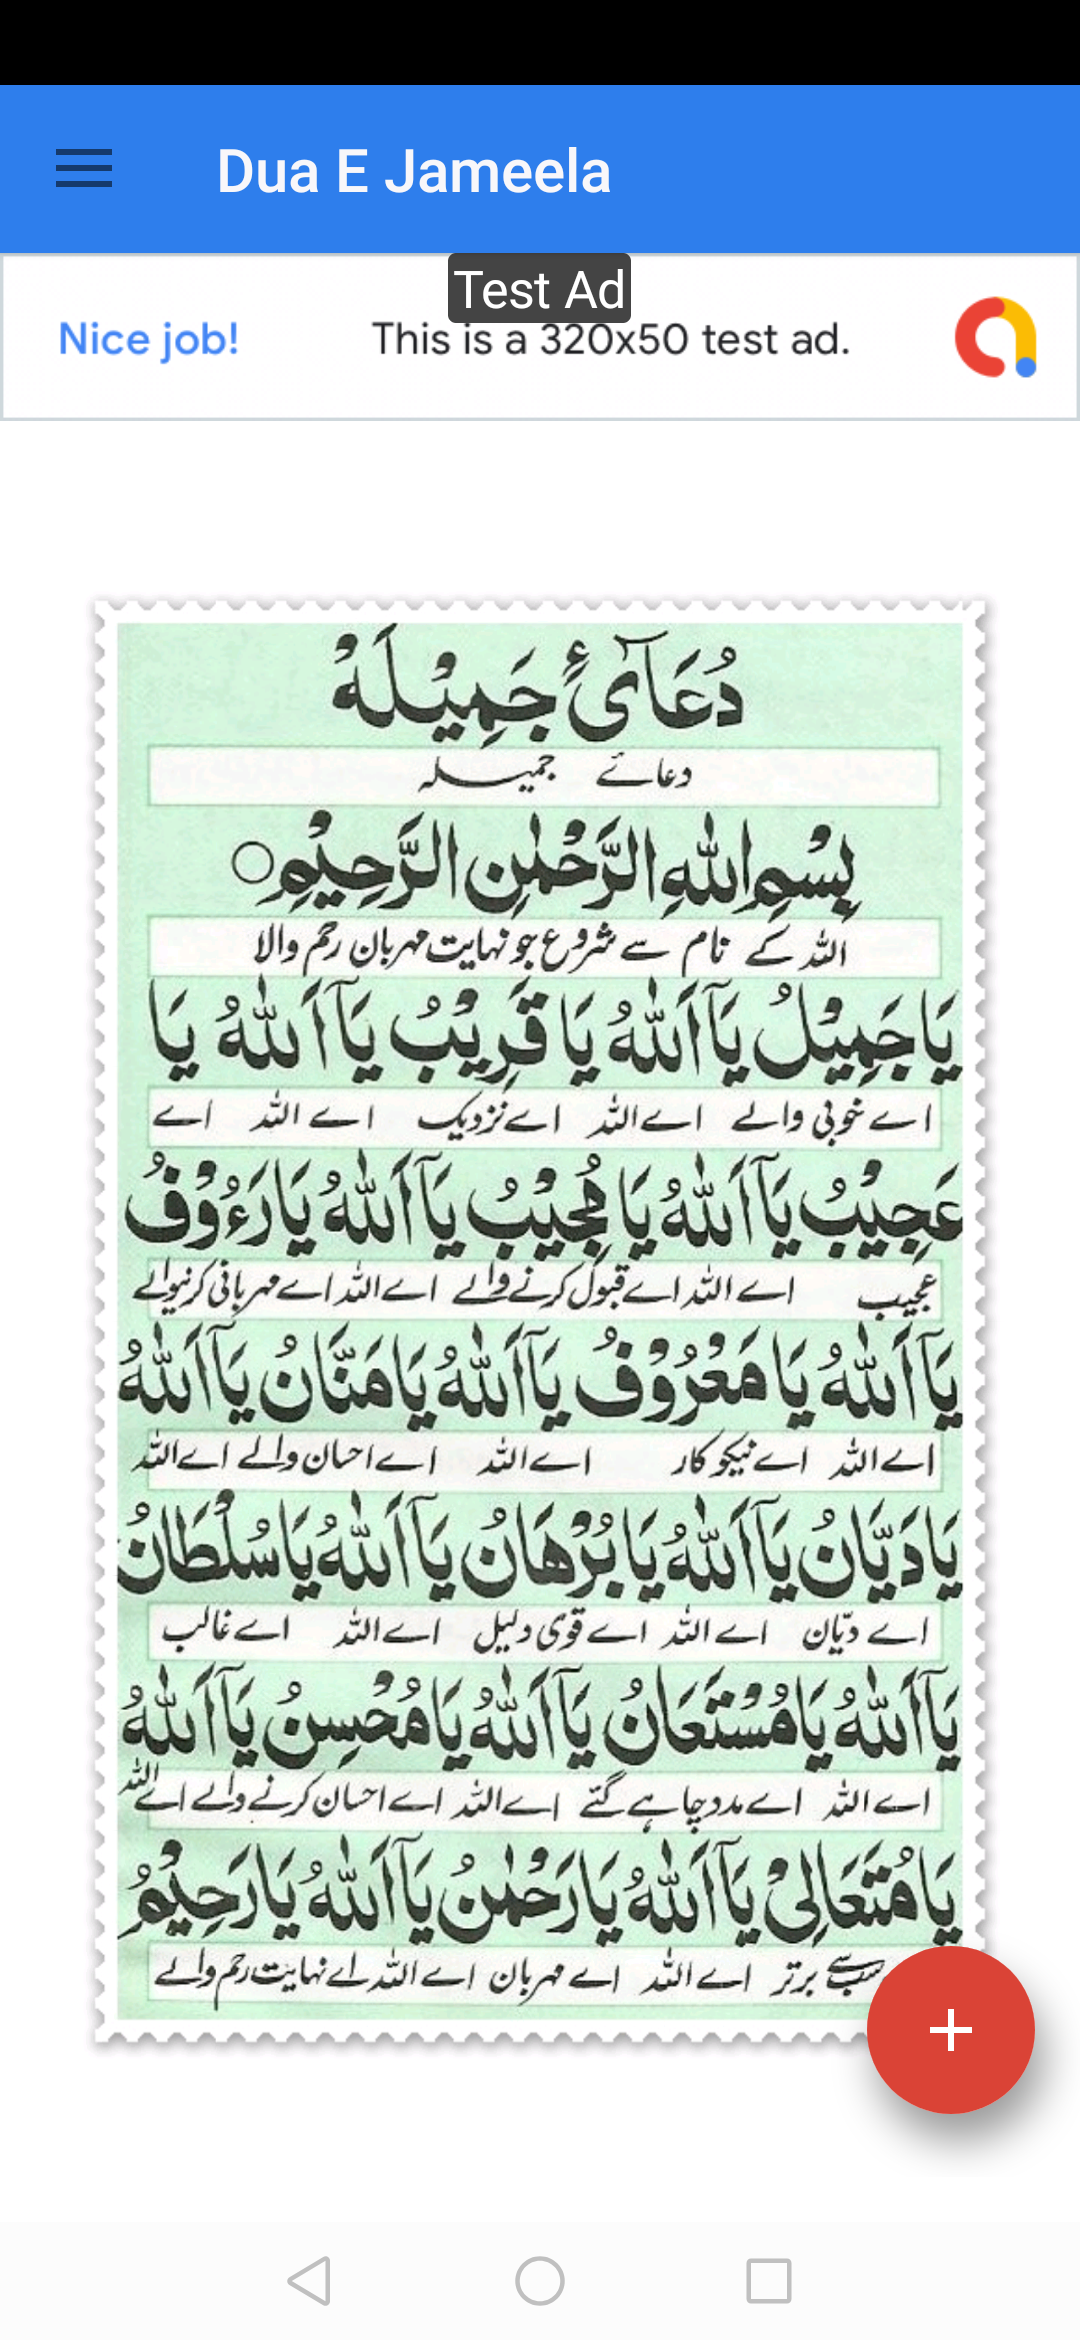 Dua E Jameela
Test Ad
Nice job!
This is a 320x50 test ad.
دُعَآئِ جَمِيْلَهْ
دعائے جمیلہ
بِسْمِ اللّٰهِ الرَّحْمٰنِ الرَّحِيْمِ○
اللہ کے نام سے شروع جو نہایت مہربان رحم والا
يَا جَمِيْلُ يَآ اَللّٰهُ يَا قَرِيْبُ يَآ اَللّٰهُ يَا
اے خوبی والے اے اللہ اے نزدیک اے اللہ اے
عَجِيْبُ يَآ اَللّٰهُ يَا مُجِيْبُ يَآ اَللّٰهُ يَا رَءُوْفُ
عجیب اے اللہ اے قبول کرنے والے اے اللہ اے مہربانی کرنیوالے
يَآ اَللّٰهُ يَا مَعْرُوْفُ يَآ اَللّٰهُ يَا مَنَّانُ يَآ اَللّٰهُ
اے اللہ اے نیکو کار اے اللہ اے احسان والے اے اللہ
يَا دَيَّانُ يَآ اَللّٰهُ يَا بُرْهَانُ يَآ اَللّٰهُ يَا سُلْطَانُ
اے دیّان اے اللہ اے قوی دلیل اے اللہ اے غالب
يَآ اَللّٰهُ يَا مُسْتَعَانُ يَآ اَللّٰهُ يَا مُحْسِنُ يَآ اَللّٰهُ
اے اللہ اے مدد چاہے گئے اے اللہ اے احسان کرنے والے اے اللہ
يَا مُتَعَالِیْ يَآ اَللّٰهُ يَا رَحْمٰنُ يَآ اَللّٰهُ يَا رَحِيْمُ
سب سے برتر اے اللہ اے مہربان اے اللہ اے نہایت رحم والے